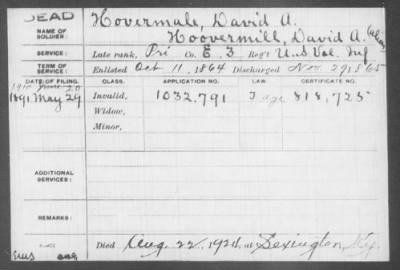 DEAD
NAME OF SOLDIER:
Hovermale, David A.
Hoovermill, David A. (alias
SERVICE:
Late rank, Pri Co. E, 3 Reg't U.S. Vol. Inf
TERM OF SERVICE:
Enlisted Oct 11, 1864 Discharged Nov. 29 1865
DATE OF FILING.
CLASS.
APPLICATION NO.
LAW.
CERTIFICATE NO.
1891 May 29
Invalid,
1032,791
818,725
Widow,
Minor,
ADDITIONAL SERVICES:
REMARKS:
Died Aug. 22, 1924, at Lexington, Ky.